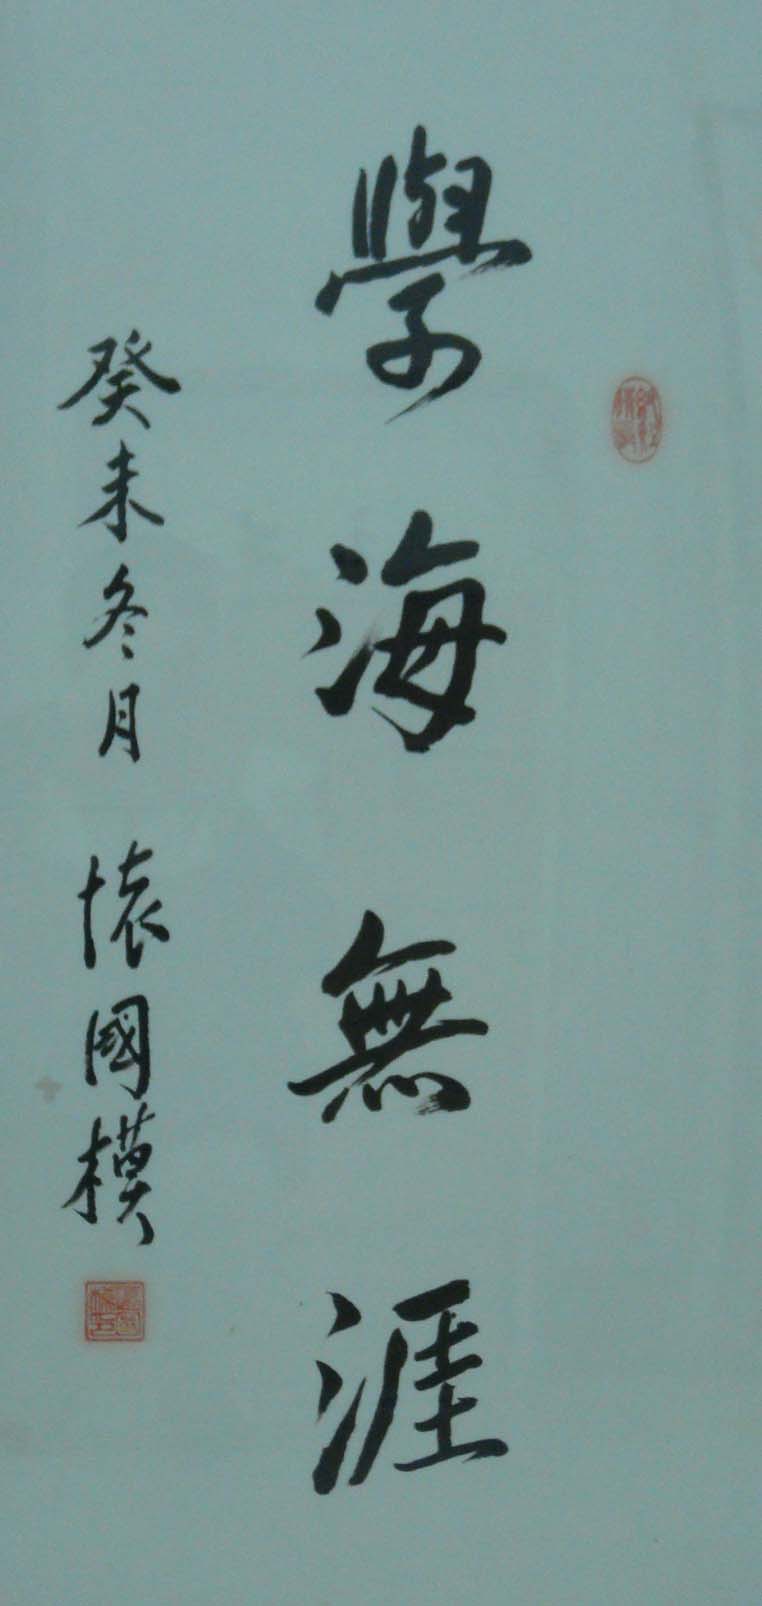 學海無涯
癸未冬月 懷國模